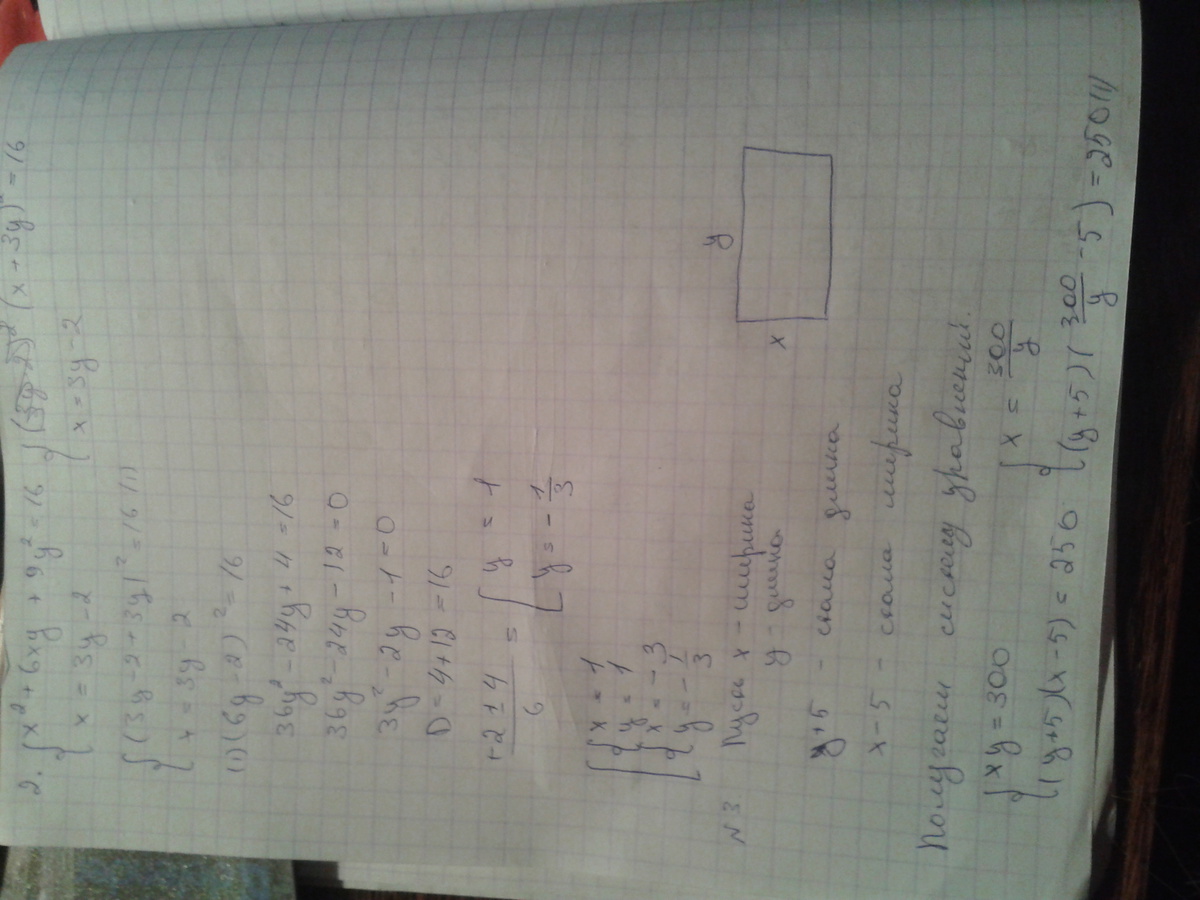 2. { x² + 6xy + 9y² = 16 { (x + 3y)² = 16
{ x = 3y - 2 { x = 3y - 2
{ (3y - 2 + 3y)² = 16 (1)
{ x = 3y - 2
(1) (6y - 2)² = 16
36y² - 24y + 4 = 16
36y² - 24y - 12 = 0
3y² - 2y - 1 = 0
D = 4 + 12 = 16
+2 ± 4 / 6 = [ y = 1
[ y = - 1/3
[ { x = 1
{ y = 1
[ { x = - 3
{ y = - 1/3
N3 Пусть x - ширина
y - длина
y
x
y + 5 - стала длина
x - 5 - стала ширина
Получаем систему уравнений.
{ xy = 300 { x = 300/y
{ (y + 5)(x - 5) = 250 { (y + 5)(300/y - 5) = 250 (1)